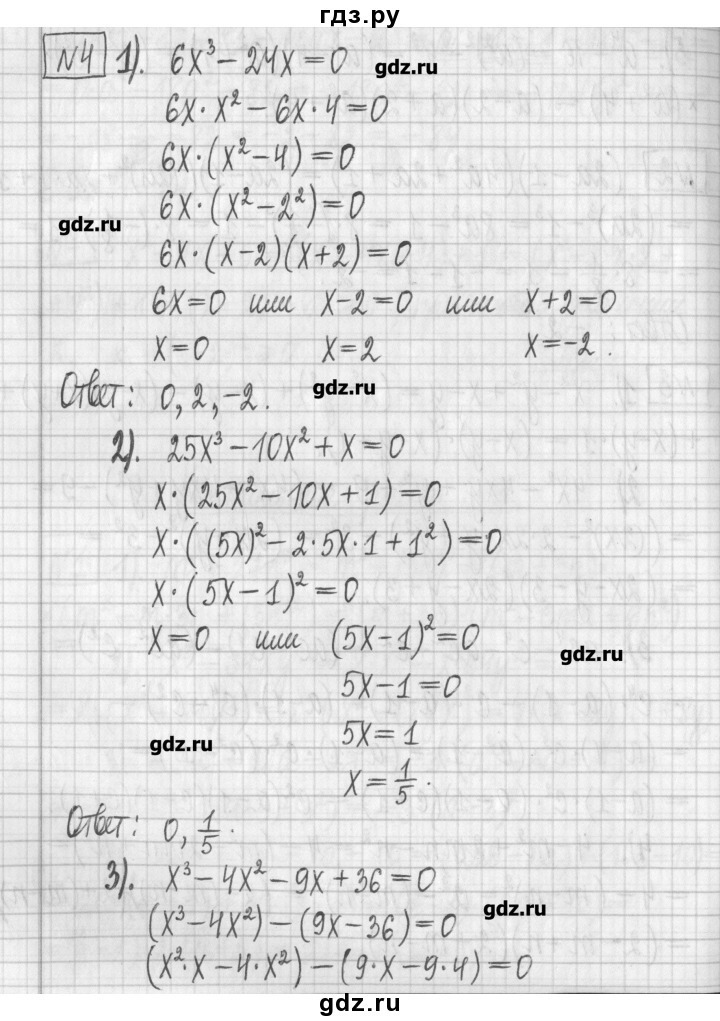 гдз.ру
№4 1). 6x³ − 24x = 0
gdz.ru
6x · x² − 6x · 4 = 0
6x · (x² − 4) = 0
6x · (x² − 2²) = 0
gdz.ru
6x · (x − 2)(x + 2) = 0
6x = 0 или x − 2 = 0 или x + 2 = 0
x = 0 x = 2 x = −2.
Ответ: 0, 2, −2.
gdz.ru
2). 25x³ − 10x² + x = 0
x · (25x² − 10x + 1) = 0
x · ((5x)² − 2 · 5x · 1 + 1²) = 0
x · (5x − 1)² = 0
x = 0 или (5x − 1)² = 0
gdz.ru
5x − 1 = 0
5x = 1
gdz.ru
x = 1/5.
Ответ: 0, 1/5.
3). x³ − 4x² − 9x + 36 = 0
gdz.ru
(x³ − 4x²) − (9x − 36) = 0
(x² · x − 4 · x²) − (9 · x − 9 · 4) = 0
gdz.ru